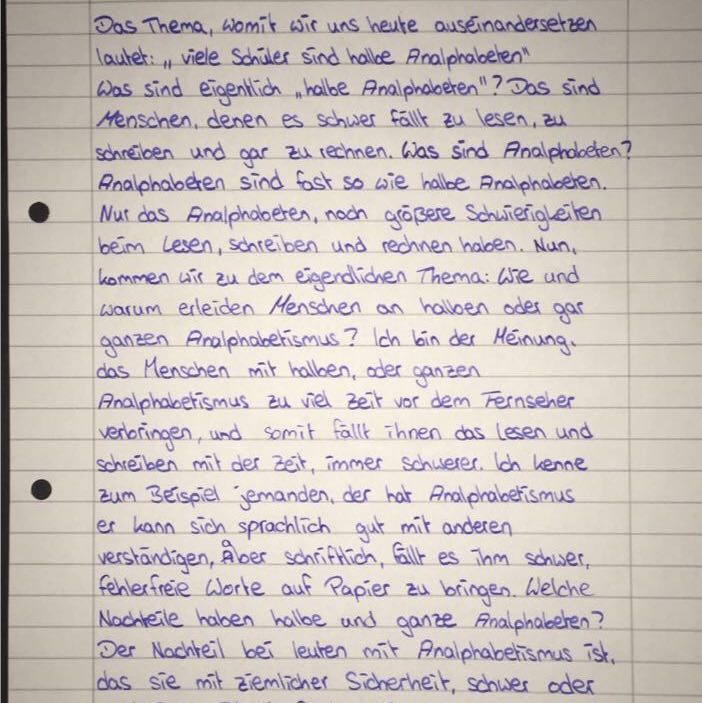 Das Thema, womit wir uns heute auseinandersetzen
lautet: „viele Schüler sind halbe Analphabeten"
Was sind eigentlich „halbe Analphabeten"? Das sind
Menschen, denen es schwer fällt zu lesen, zu
schreiben und gar zu rechnen. Was sind Analphabeten?
Analphabeten sind fast so wie halbe Analphabeten.
Nur das Analphabeten, noch größere Schwierigkeiten
beim Lesen, schreiben und rechnen haben. Nun,
kommen wir zu dem eigendlichen Thema: Wie und
warum erleiden Menschen an halben oder gar
ganzen Analphabetismus? Ich bin der Meinung,
das Menschen mit halben, oder ganzen
Analphabetismus zu viel Zeit vor dem Fernseher
verbringen, und somit fällt ihnen das lesen und
schreiben mit der Zeit, immer schwerer. Ich kenne
zum Beispiel jemanden, der hat Analphabetismus
er kann sich sprachlich gut mit anderen
verständigen, Aber schriftlich, fällt es ihm schwer,
fehlerfreie Worte auf Papier zu bringen. Welche
Nachteile haben halbe und ganze Analphabeten?
Der Nachteil bei leuten mit Analphabetismus ist,
das sie mit ziemlicher Sicherheit, schwer oder